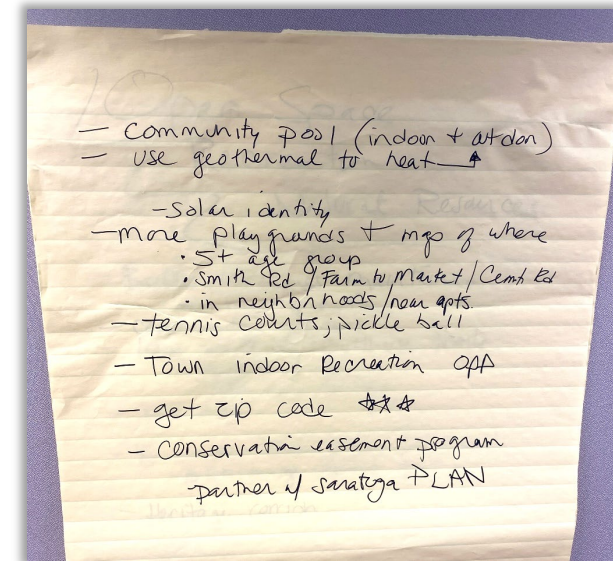 — Community pool (indoor + outdoor)
— use geothermal to heat
- Solar identity
— more playgrounds + map of where
• 5+ age group
• Smith Rd / Farm to Market / Cemt Rd
• in neighborhoods/near apts.
— tennis courts; pickle ball
— Town indoor Recreation opp
— get zip code ☆☆☆
— Conservation easement program
-partner w/ Saratoga PLAN